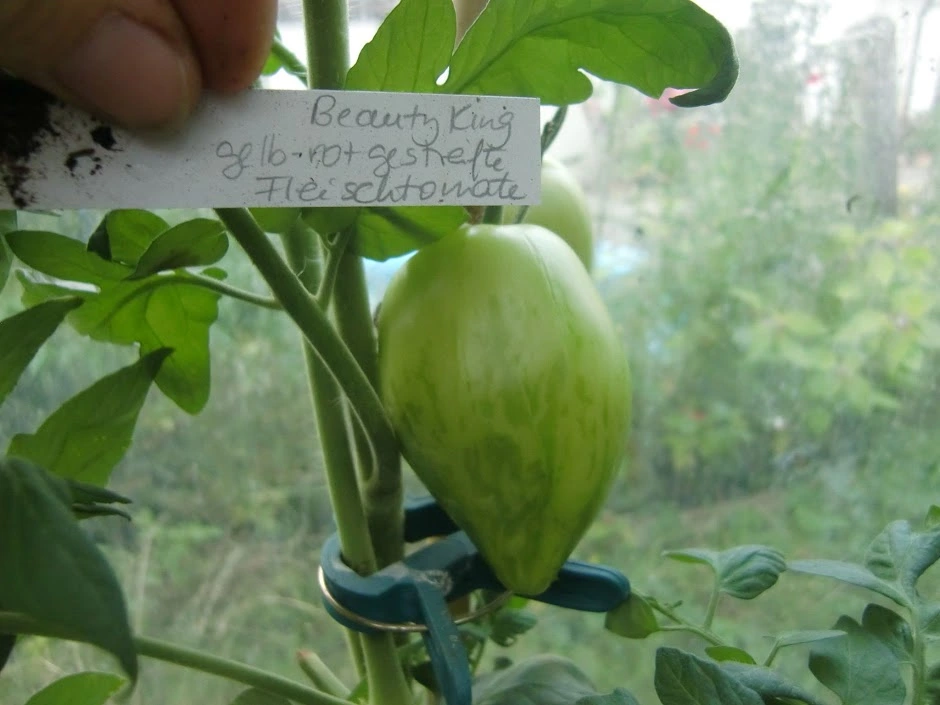 Beauty King
gelb-rot gestreifte
Fleischtomate